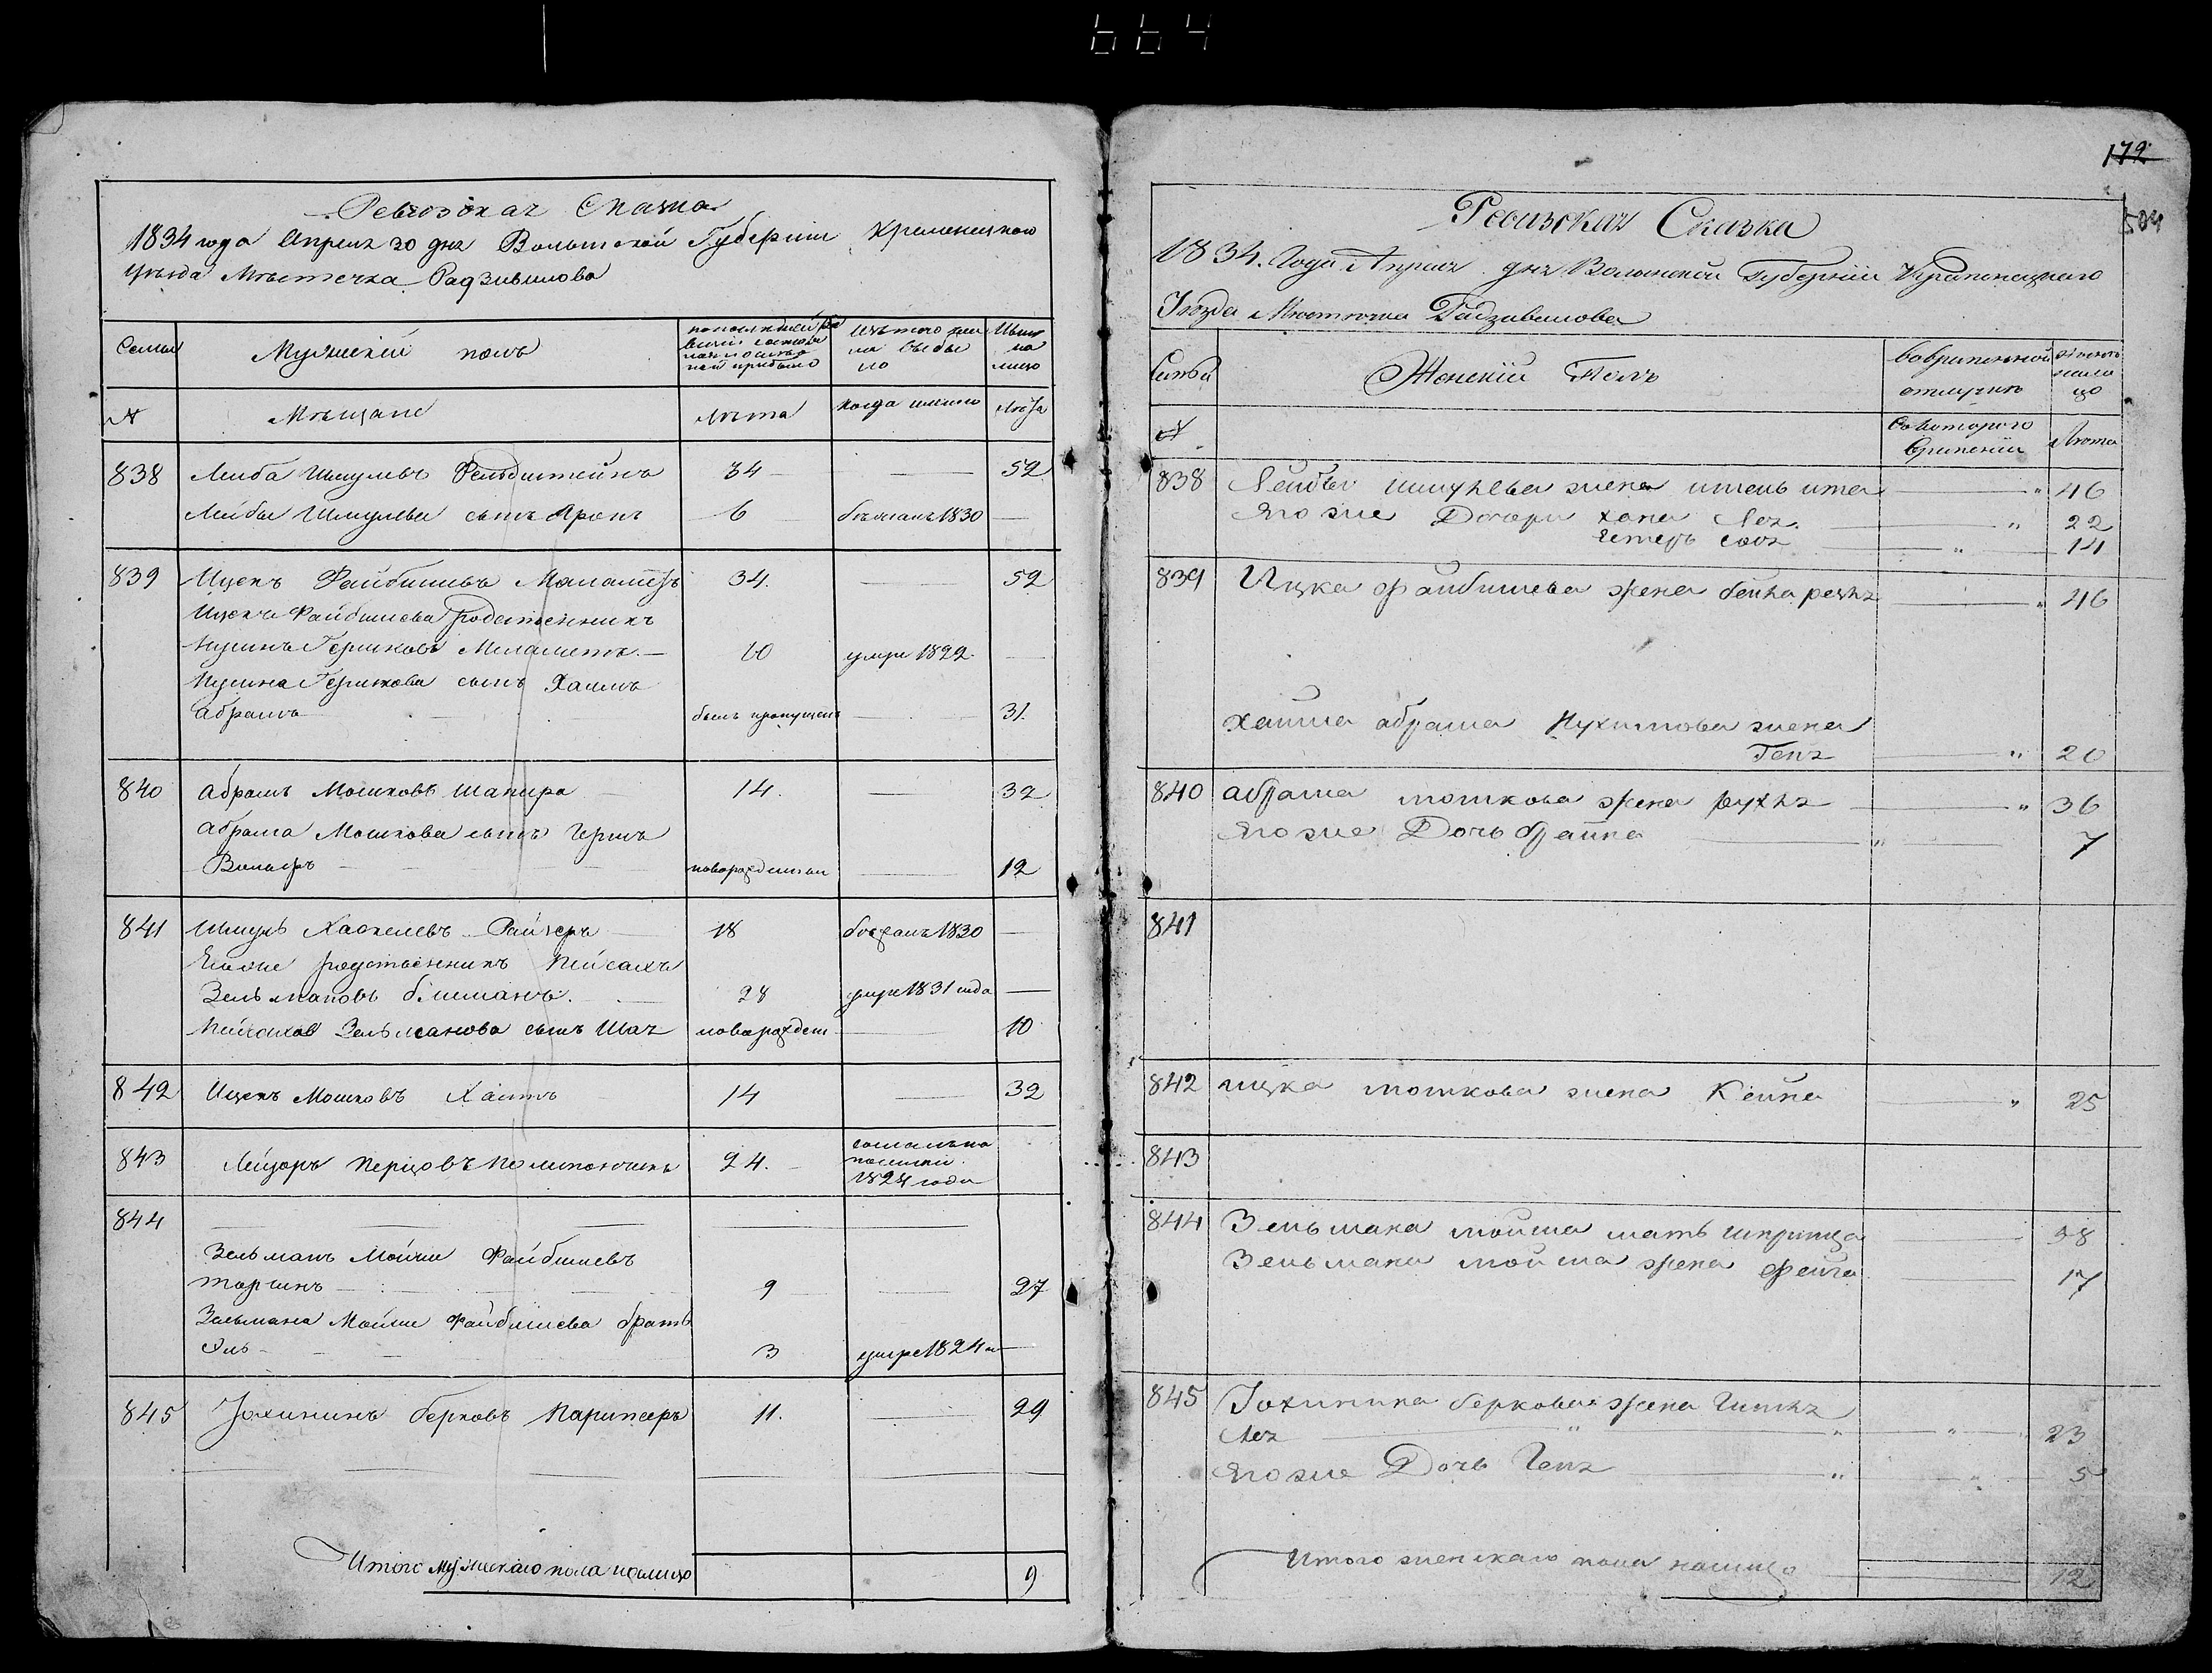 664
Ревизская Сказка
1834 года Апреля 20 дня Волынской Губернии Кременецкого
Уѣзда Мѣстечка Радзивилова
Семьи
Мужеский полъ
Изъ того числа выбыло
Нынѣ на лицо
№
Мѣщане
Лѣта
Когда именно
Лѣта
838 Лейба Шмулевъ Фельдштейнъ 34 — 52
Лейбы Шмулева сынъ Аронъ 6 бѣжалъ 1830 —
839 Ицекъ Файбишевъ Маламетъ 34. — 52
Ицека Файбишева родственникъ
Нусинъ Гершковъ Меламетъ — 60 умре 1822. —
Нусина Гершкова сынъ Хаимъ
Абрамъ — былъ пропущенъ — 31.
840 Абрамъ Мошковъ Шапира 14. — 32
Абрама Мошкова сынъ Гершъ
Вольфъ — новорожденный — 12
841 Шмуль Хаскелевъ 18 бѣжалъ 1830 —
Его же родственникъ Пейсахъ
Зельмановъ 28 умре 1831 года —
Пейсахов Зельманова сынъ Шая новорожден — 10
842 Ицекъ Мошковъ Хаитъ 14 — 32
843 Лейзоръ Перцовъ 24. 1824 года
844
Зельманъ Мойше Файбишевъ
9 — 27
Зельмана Мойше Файбишева братъ
3 умре 1824 —
845 Берковъ 11. — 29
Итого мужескаго пола налицо 9
172
504
Ревизская Сказка
1834. Года Апреля дня Волынской Губернии Кременецкаго
Уѣзда Мѣстечка Радзивилова
Семьи
Женскій Полъ
Во временной отлучкѣ
№
Съ котораго времени
Лѣта
838 Лейбы Шмулева жена 〃 46
Его же Дочери Хана Лея. 〃 22
Естеръ 〃 14
839 Ицка Файбишева жена Бейла 〃 46
Хаима Абрама Нухимова жена
Геня 〃 20
840 Абрама Мошкова жена Рухля 〃 36
Его же Дочь Фейга 〃 7
841
842 Ицка Мошкова жена Кейла 〃 25
843
844 Зельмана Мойша мать Шпринца 38
Зельмана Мойша жена Фейга 17
845 Беркова жена Гитля
Лея 〃 23
Его же Дочь Геня 〃 5
Итого женскаго пола налицо 12